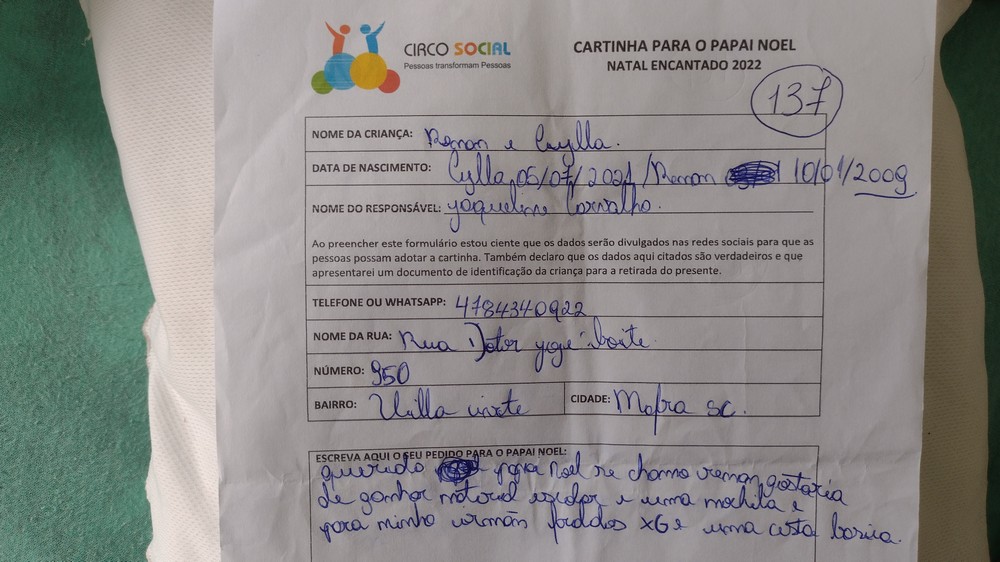 CIRCO SOCIAL
Pessoas transformam Pessoas
CARTINHA PARA O PAPAI NOEL
NATAL ENCANTADO 2022
137
NOME DA CRIANÇA: Renan e Cylla.
DATA DE NASCIMENTO: Cylla 05/07/2021 / Renan 10/01/2009
NOME DO RESPONSÁVEL: yaqueline Carvalho.
Ao preencher este formulário estou ciente que os dados serão divulgados nas redes sociais para que as
pessoas possam adotar a cartinha. Também declaro que os dados aqui citados são verdadeiros e que
apresentarei um documento de identificação da criança para a retirada do presente.
TELEFONE OU WHATSAPP: 4784340922
NOME DA RUA: Rua Dotor
NÚMERO: 950
BAIRRO: Villa
CIDADE: Mafra SC.
ESCREVA AQUI O SEU PEDIDO PARA O PAPAI NOEL:
querido papai Noel me chamo renan gostaria
de ganhar material escolar e uma mochila e
para minha irmãn fraldas XG e uma cesta basica.